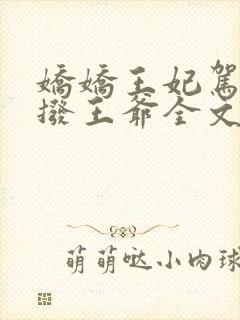 嬌嬌王妃駕
撥王爺全文
萌萌噠小肉球